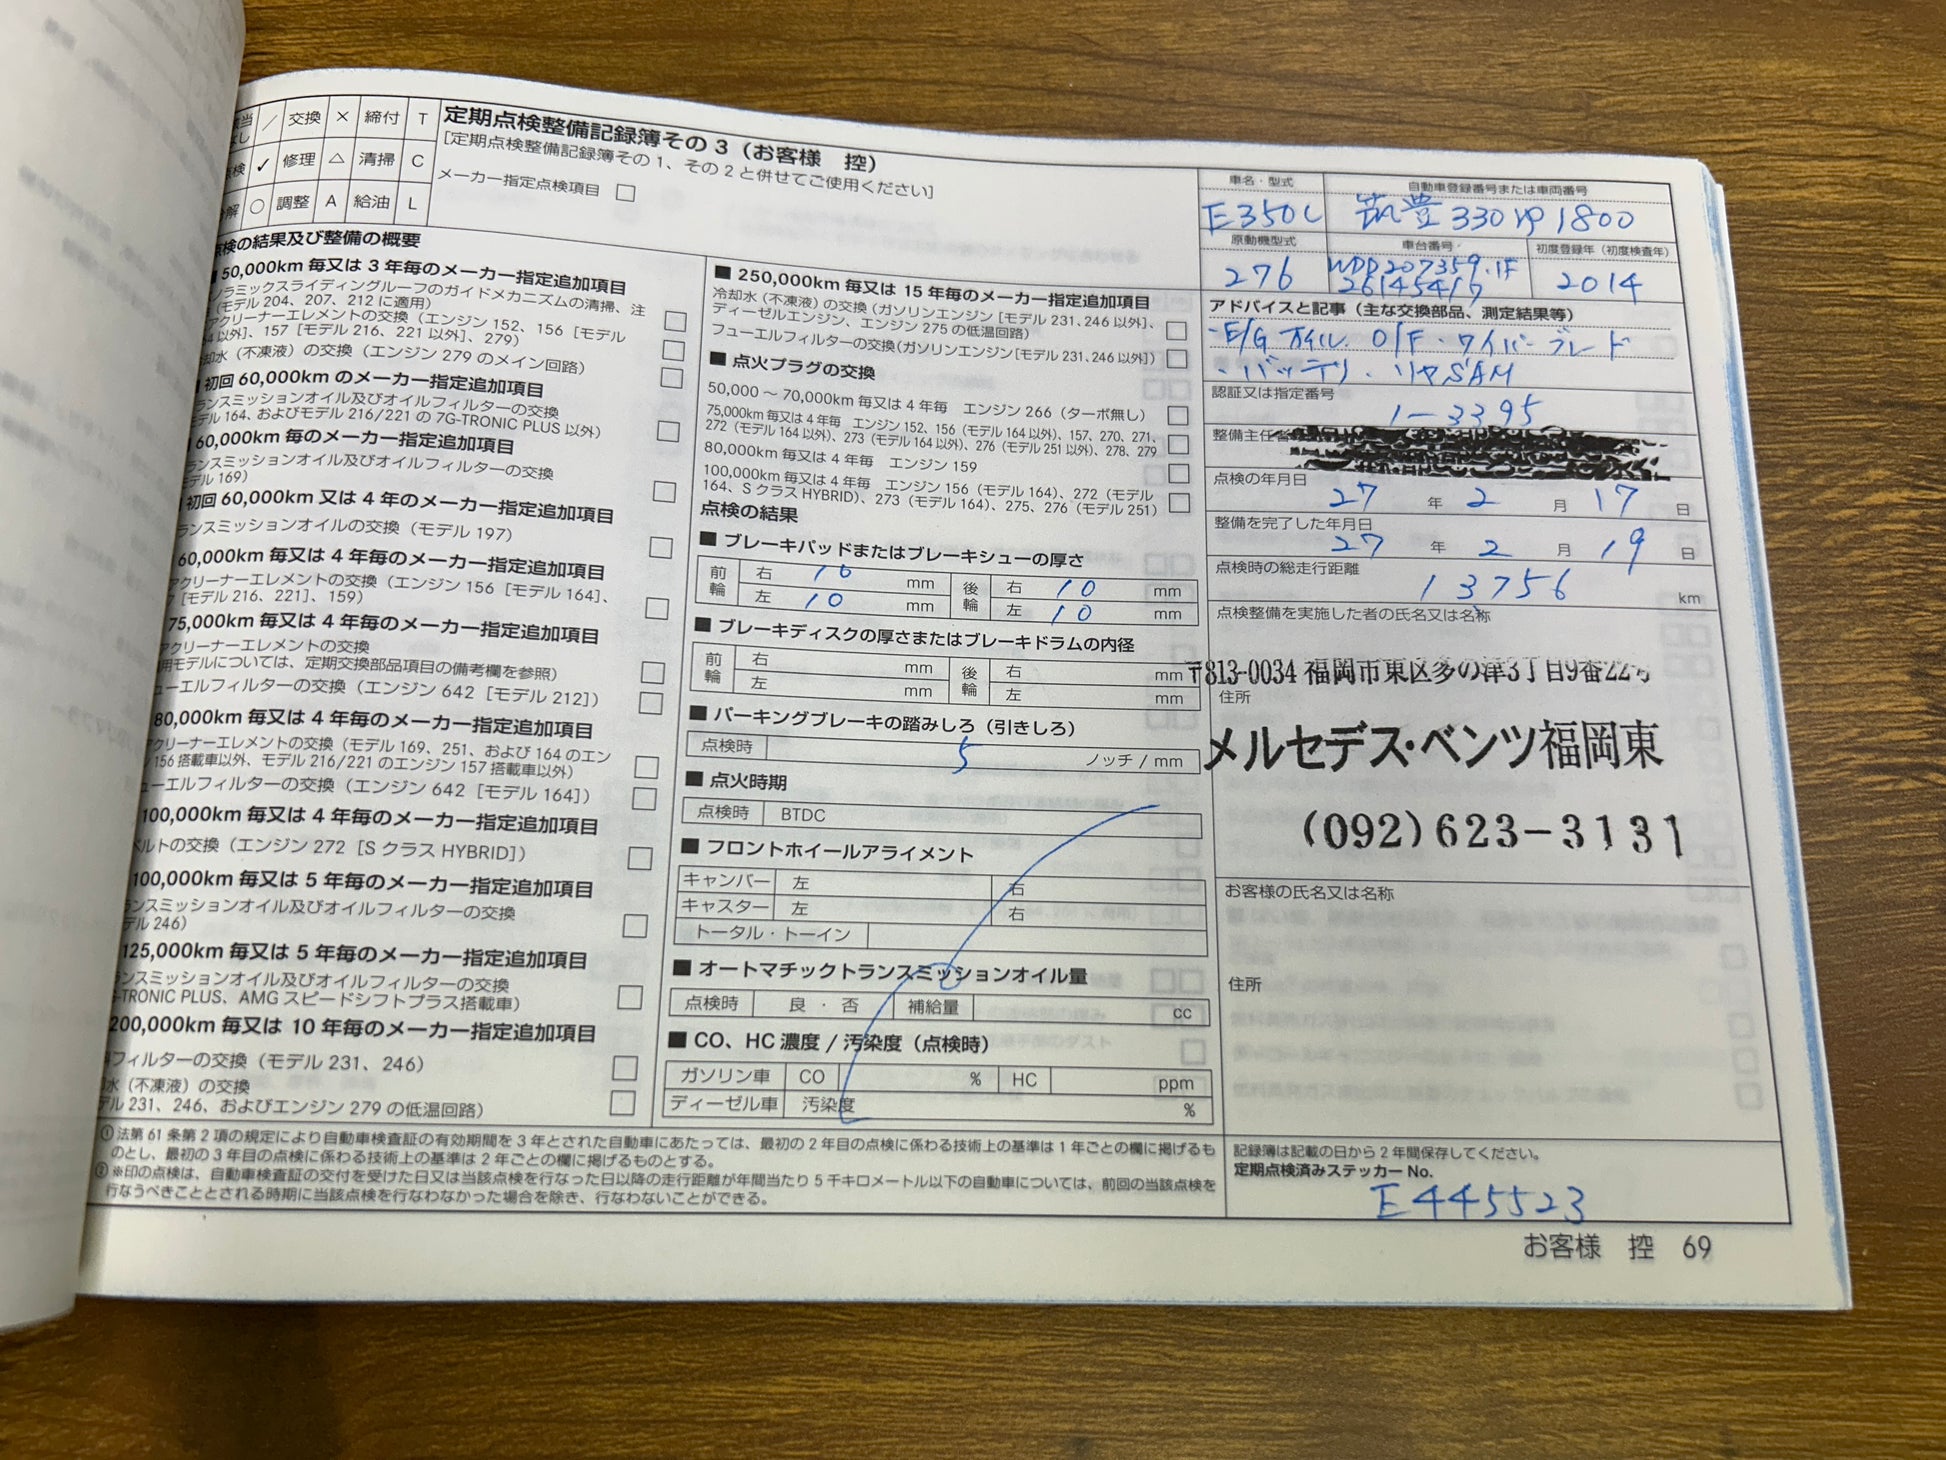 交換 × 締付 T
✓ 修理 △ 清掃 C
○ 調整 A 給油 L
定期点検整備記録簿その3（お客様 控）
[定期点検整備記録簿その1、その2と併せてご使用ください]
メーカー指定点検項目 □
点検の結果及び整備の概要
■ 50,000km毎又は3年毎のメーカー指定追加項目
ノラミックスライディングルーフのガイドメカニズムの清掃、注
（モデル204、207、212に適用）
アクリーナーエレメントの交換（エンジン152、156［モデル
4以外］、157［モデル216、221以外］、279） □
却水（不凍液）の交換（エンジン279のメイン回路） □
初回60,000kmのメーカー指定追加項目
ランスミッションオイル及びオイルフィルターの交換
モデル164、およびモデル216/221の7G-TRONIC PLUS以外） □
60,000km毎のメーカー指定追加項目
ランスミッションオイル及びオイルフィルターの交換
モデル169） □
初回60,000km又は4年毎のメーカー指定追加項目
ランスミッションオイルの交換（モデル197） □
60,000km毎又は4年毎のメーカー指定追加項目
アクリーナーエレメントの交換（エンジン156［モデル164］、
7［モデル216、221］、159） □
75,000km毎又は4年毎のメーカー指定追加項目
アクリーナーエレメントの交換
用モデルについては、定期交換部品項目の備考欄を参照） □
ューエルフィルターの交換（エンジン642［モデル212］） □
80,000km毎又は4年毎のメーカー指定追加項目
アクリーナーエレメントの交換（モデル169、251、および164のエン
156搭載車以外、モデル216/221のエンジン157搭載車以外） □
ューエルフィルターの交換（エンジン642［モデル164］） □
100,000km毎又は4年毎のメーカー指定追加項目
ベルトの交換（エンジン272［SクラスHYBRID］） □
100,000km毎又は5年毎のメーカー指定追加項目
ランスミッションオイル及びオイルフィルターの交換
デル246） □
125,000km毎又は5年毎のメーカー指定追加項目
ランスミッションオイル及びオイルフィルターの交換
G-TRONIC PLUS、AMGスピードシフトプラス搭載車） □
200,000km毎又は10年毎のメーカー指定追加項目
フィルターの交換（モデル231、246） □
水（不凍液）の交換
デル231、246、およびエンジン279の低温回路） □
■ 250,000km毎又は15年毎のメーカー指定追加項目
冷却水（不凍液）の交換（ガソリンエンジン［モデル231、246以外］、
ディーゼルエンジン、エンジン275の低温回路） □
フューエルフィルターの交換（ガソリンエンジン［モデル231、246以外］） □
■ 点火プラグの交換
50,000～70,000km毎又は4年毎 エンジン266（ターボ無し） □
75,000km毎又は4年毎 エンジン152、156（モデル164以外）、157、270、271、
272（モデル164以外）、273（モデル164以外）、276（モデル251以外）、278、279 □
80,000km毎又は4年毎 エンジン159 □
100,000km毎又は4年毎 エンジン156（モデル164）、272（モデル
164、SクラスHYBRID）、273（モデル164）、275、276（モデル251） □
点検の結果
■ ブレーキパッドまたはブレーキシューの厚さ
前輪 右 10 mm 後輪 右 10 mm
左 10 mm 左 10 mm
■ ブレーキディスクの厚さまたはブレーキドラムの内径
前輪 右 mm 後輪 右 mm
左 mm 左 mm
■ パーキングブレーキの踏みしろ（引きしろ）
点検時 5 ノッチ/mm
■ 点火時期
点検時 BTDC
■ フロントホイールアライメント
キャンバー 左 右
キャスター 左 右
トータル・トーイン
■ オートマチックトランスミッションオイル量
点検時 良・否 補給量 cc
■ CO、HC濃度/汚染度（点検時）
ガソリン車 CO % HC ppm
ディーゼル車 汚染度 %
車名・型式 自動車登録番号または車両番号
E350C 筑豊330 1800
原動機型式 車台番号 初度登録年（初度検査年）
276 WDD207359.1F 2014
アドバイスと記事（主な交換部品、測定結果等）
・E/Gオイル、O/F・ワイパーブレード
・バッテリ・リヤSAM
認証又は指定番号
1-3395
整備主任者
点検の年月日
27年2月17日
整備を完了した年月日
27年2月19日
点検時の総走行距離
13756 km
点検整備を実施した者の氏名又は名称
〒813-0034 福岡市東区多の津3丁目9番22号
住所
メルセデス・ベンツ福岡東
(092)623-3131
お客様の氏名又は名称
住所
① 法第61条第2項の規定により自動車検査証の有効期間を3年とされた自動車にあたっては、最初の2年目の点検に係わる技術上の基準は1年ごとの欄に掲げるも
のとし、最初の3年目の点検に係わる技術上の基準は2年ごとの欄に掲げるものとする。
② ※印の点検は、自動車検査証の交付を受けた日又は当該点検を行なった日以降の走行距離が年間当たり5千キロメートル以下の自動車については、前回の当該点検を
行なうべきこととされる時期に当該点検を行なわなかった場合を除き、行なわないことができる。
記録簿は記載の日から2年間保存してください。
定期点検済みステッカーNo.
E445523
お客様 控 69